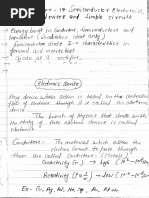 14 Semiconductor Electronic
devices and simple circuits
Energy bands in conductors, Semiconductors and
insulators (qualitative ideas only)
Semiconductor diode I-V characteristics in
forward and reverse
Diode as a rectifier.
Electronic Device
Any device whose action is based on the controlled
flow of electrons through it is called an electronic
device.
The branch of physics that deals with
the study of these devices is called electronics.
Conductors: The materials which allow the
electric current to pass through
them are called Conductors. (Metals)
Conductivity (σ) → high
Resistivity → low
Ex -